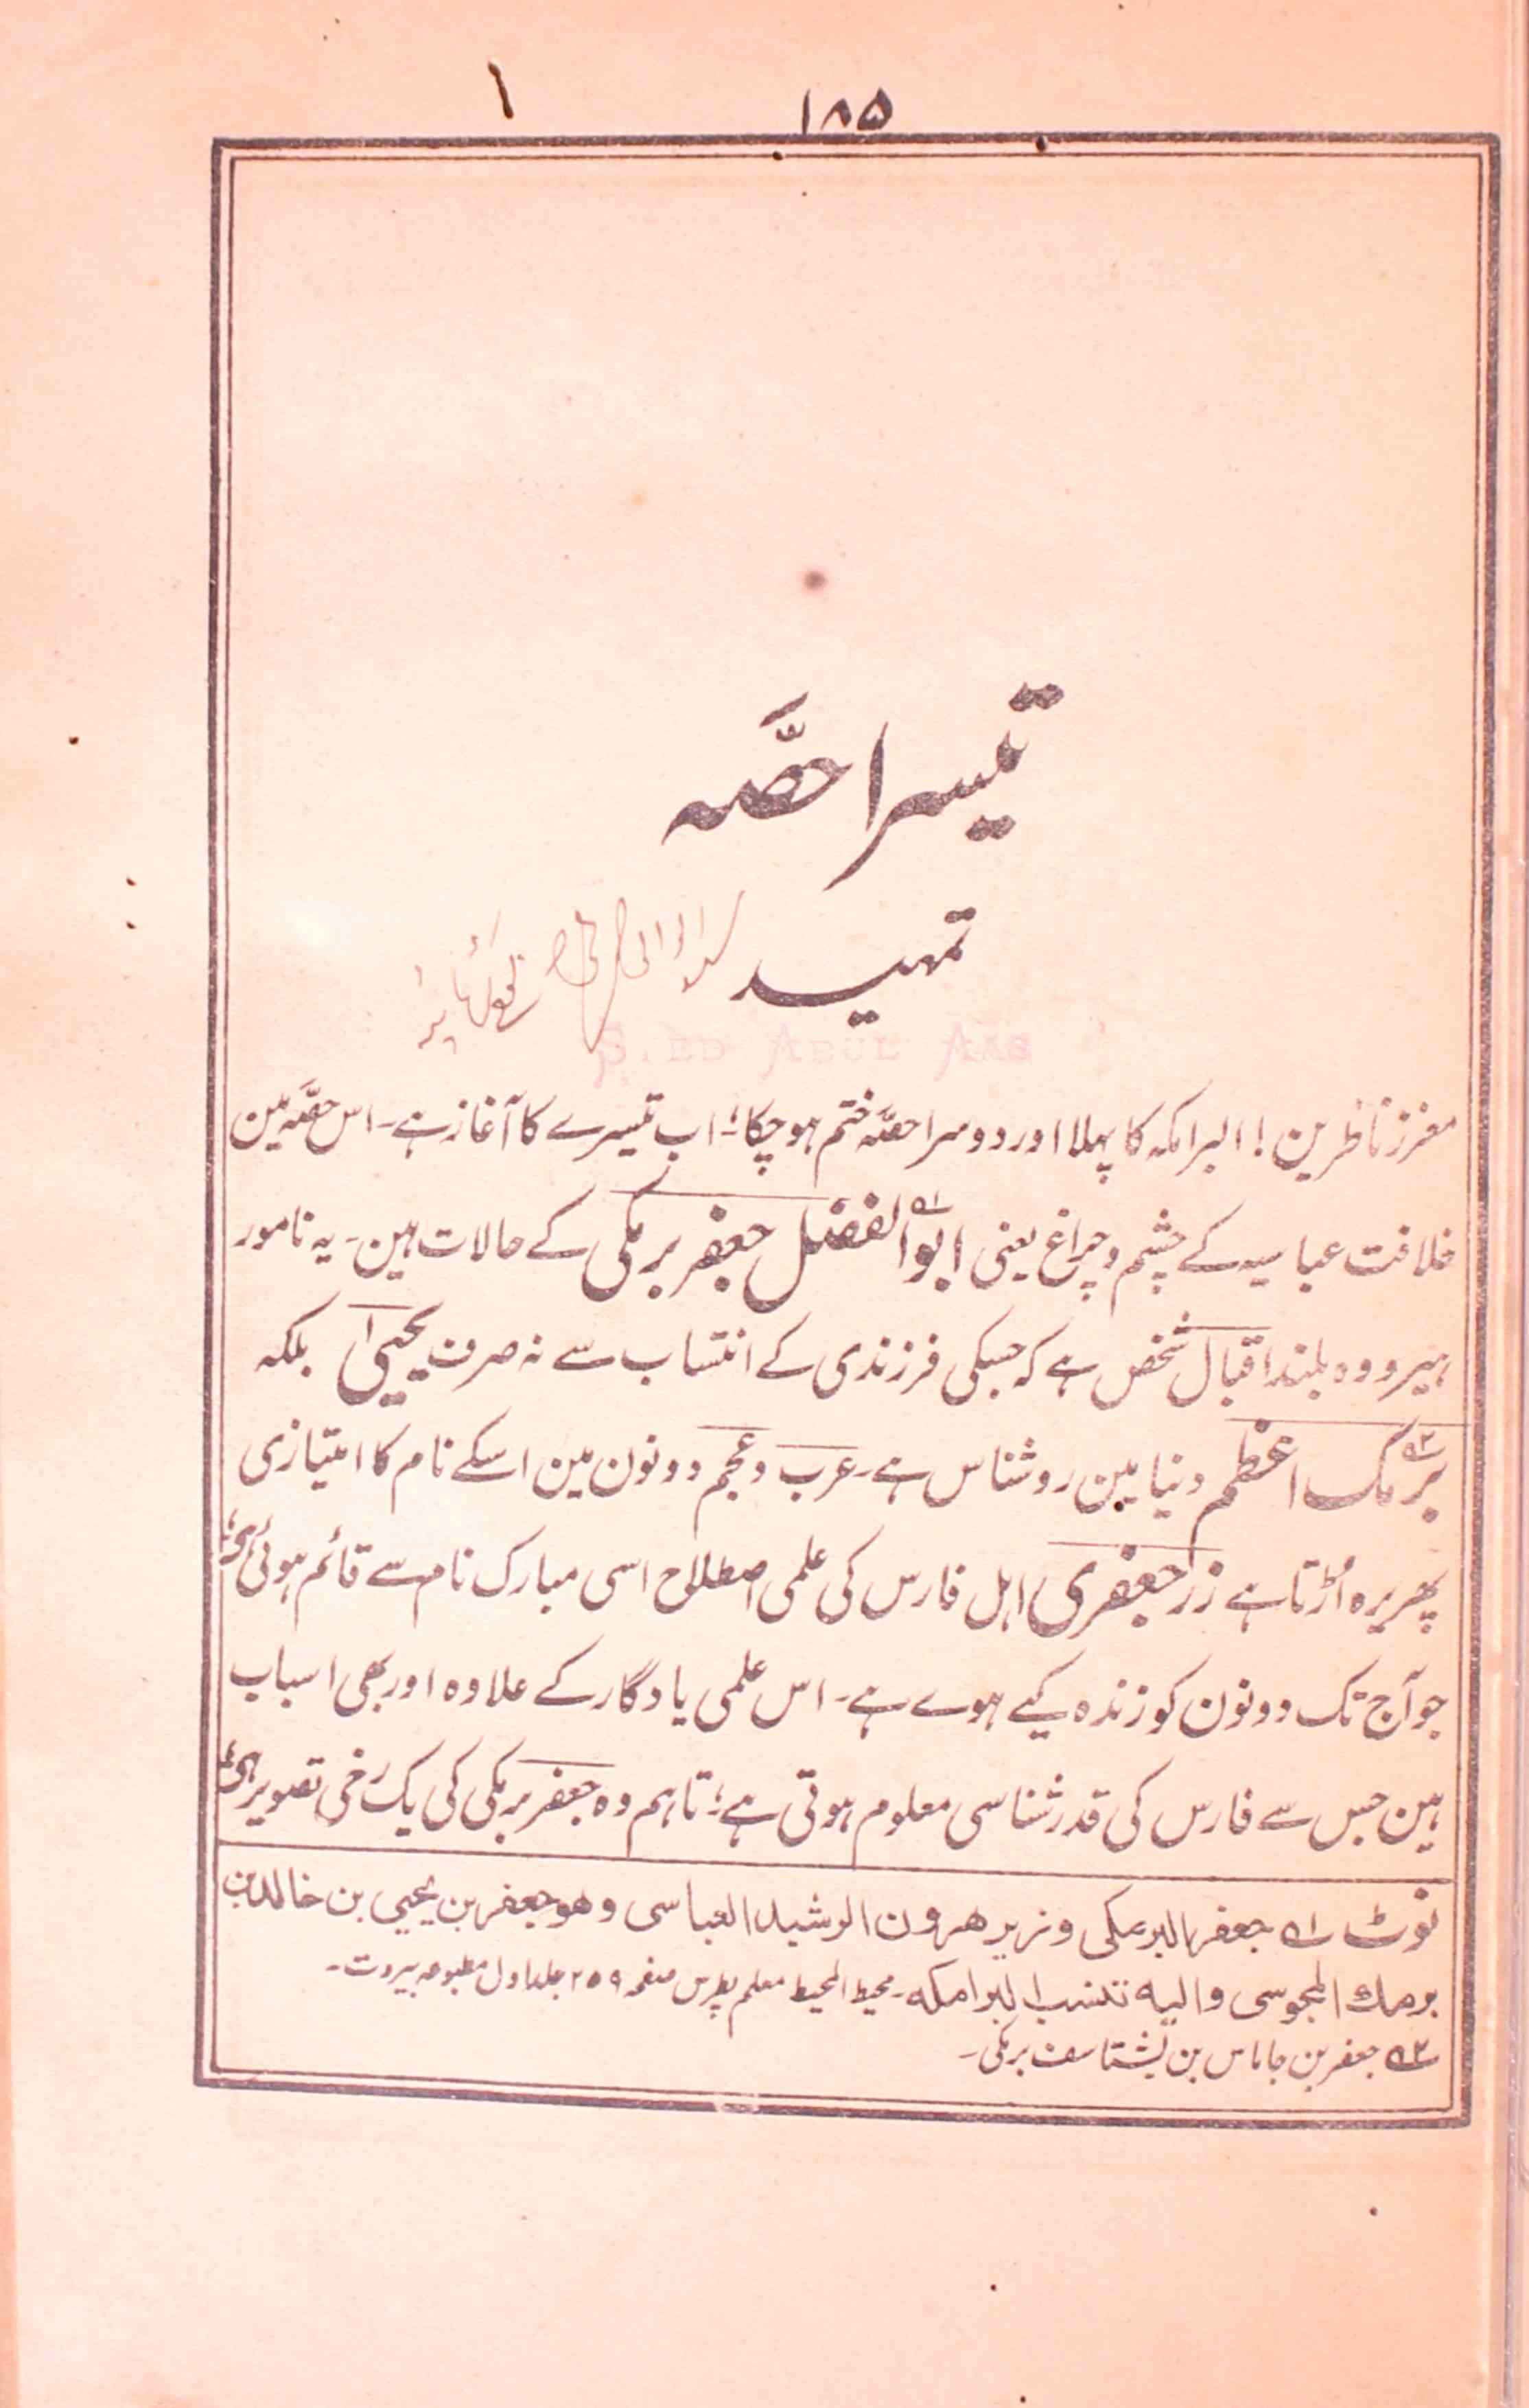 ۱۸۵
۱
تیسرا حصّہ
تمہید
S. ED ABUL AAS
معزز ناظرین! البرامکہ کا پہلا اور دوسرا حصّہ ختم ہوچکا؛ اب تیسرے کا آغاز ہے۔ اس حصّہ مین
خلافت عباسیہ کے چشم و چراغ یعنی ابو الفضل۱ جعفر برمکی کے حالات ہین۔ یہ نامور
ہیرو وہ بلند اقبال شخص ہے کہ جسکی فرزندی کے انتساب سے نہ صرف یحییٰ بلکہ
برمک۲ اعظم دنیا مین روشناس ہے۔ عرب و عجم دونون مین اسکے نام کا امتیازی
پھریرہ اُڑتا ہے زر جعفری اہل فارس کی علمی اصطلاح اسی مبارک نام سے قائم ہوئی ہی؛
جو آج تک دونون کو زندہ کیے ہوے ہے۔ اس علمی یادگار کے علاوہ اور بھی اسباب
ہین جس سے فارس کی قدر شناسی معلوم ہوتی ہے؛ تاہم وہ جعفر برمکی کی یک رخی تصویر ہی؛
نوٹ ۱ جعفر البرمکی وزیر هرون الرشید العباسی وهو جعفر بن یحیی بن خالد بن
برمك المجوسی والیه تنسب البرامکه۔ محیط المحیط معلم پطرس صفحہ ۲۵۹ جلد اول مطبوعہ بیروت۔
۲ جعفر بن جاماس بن یشتاسف برمکی۔